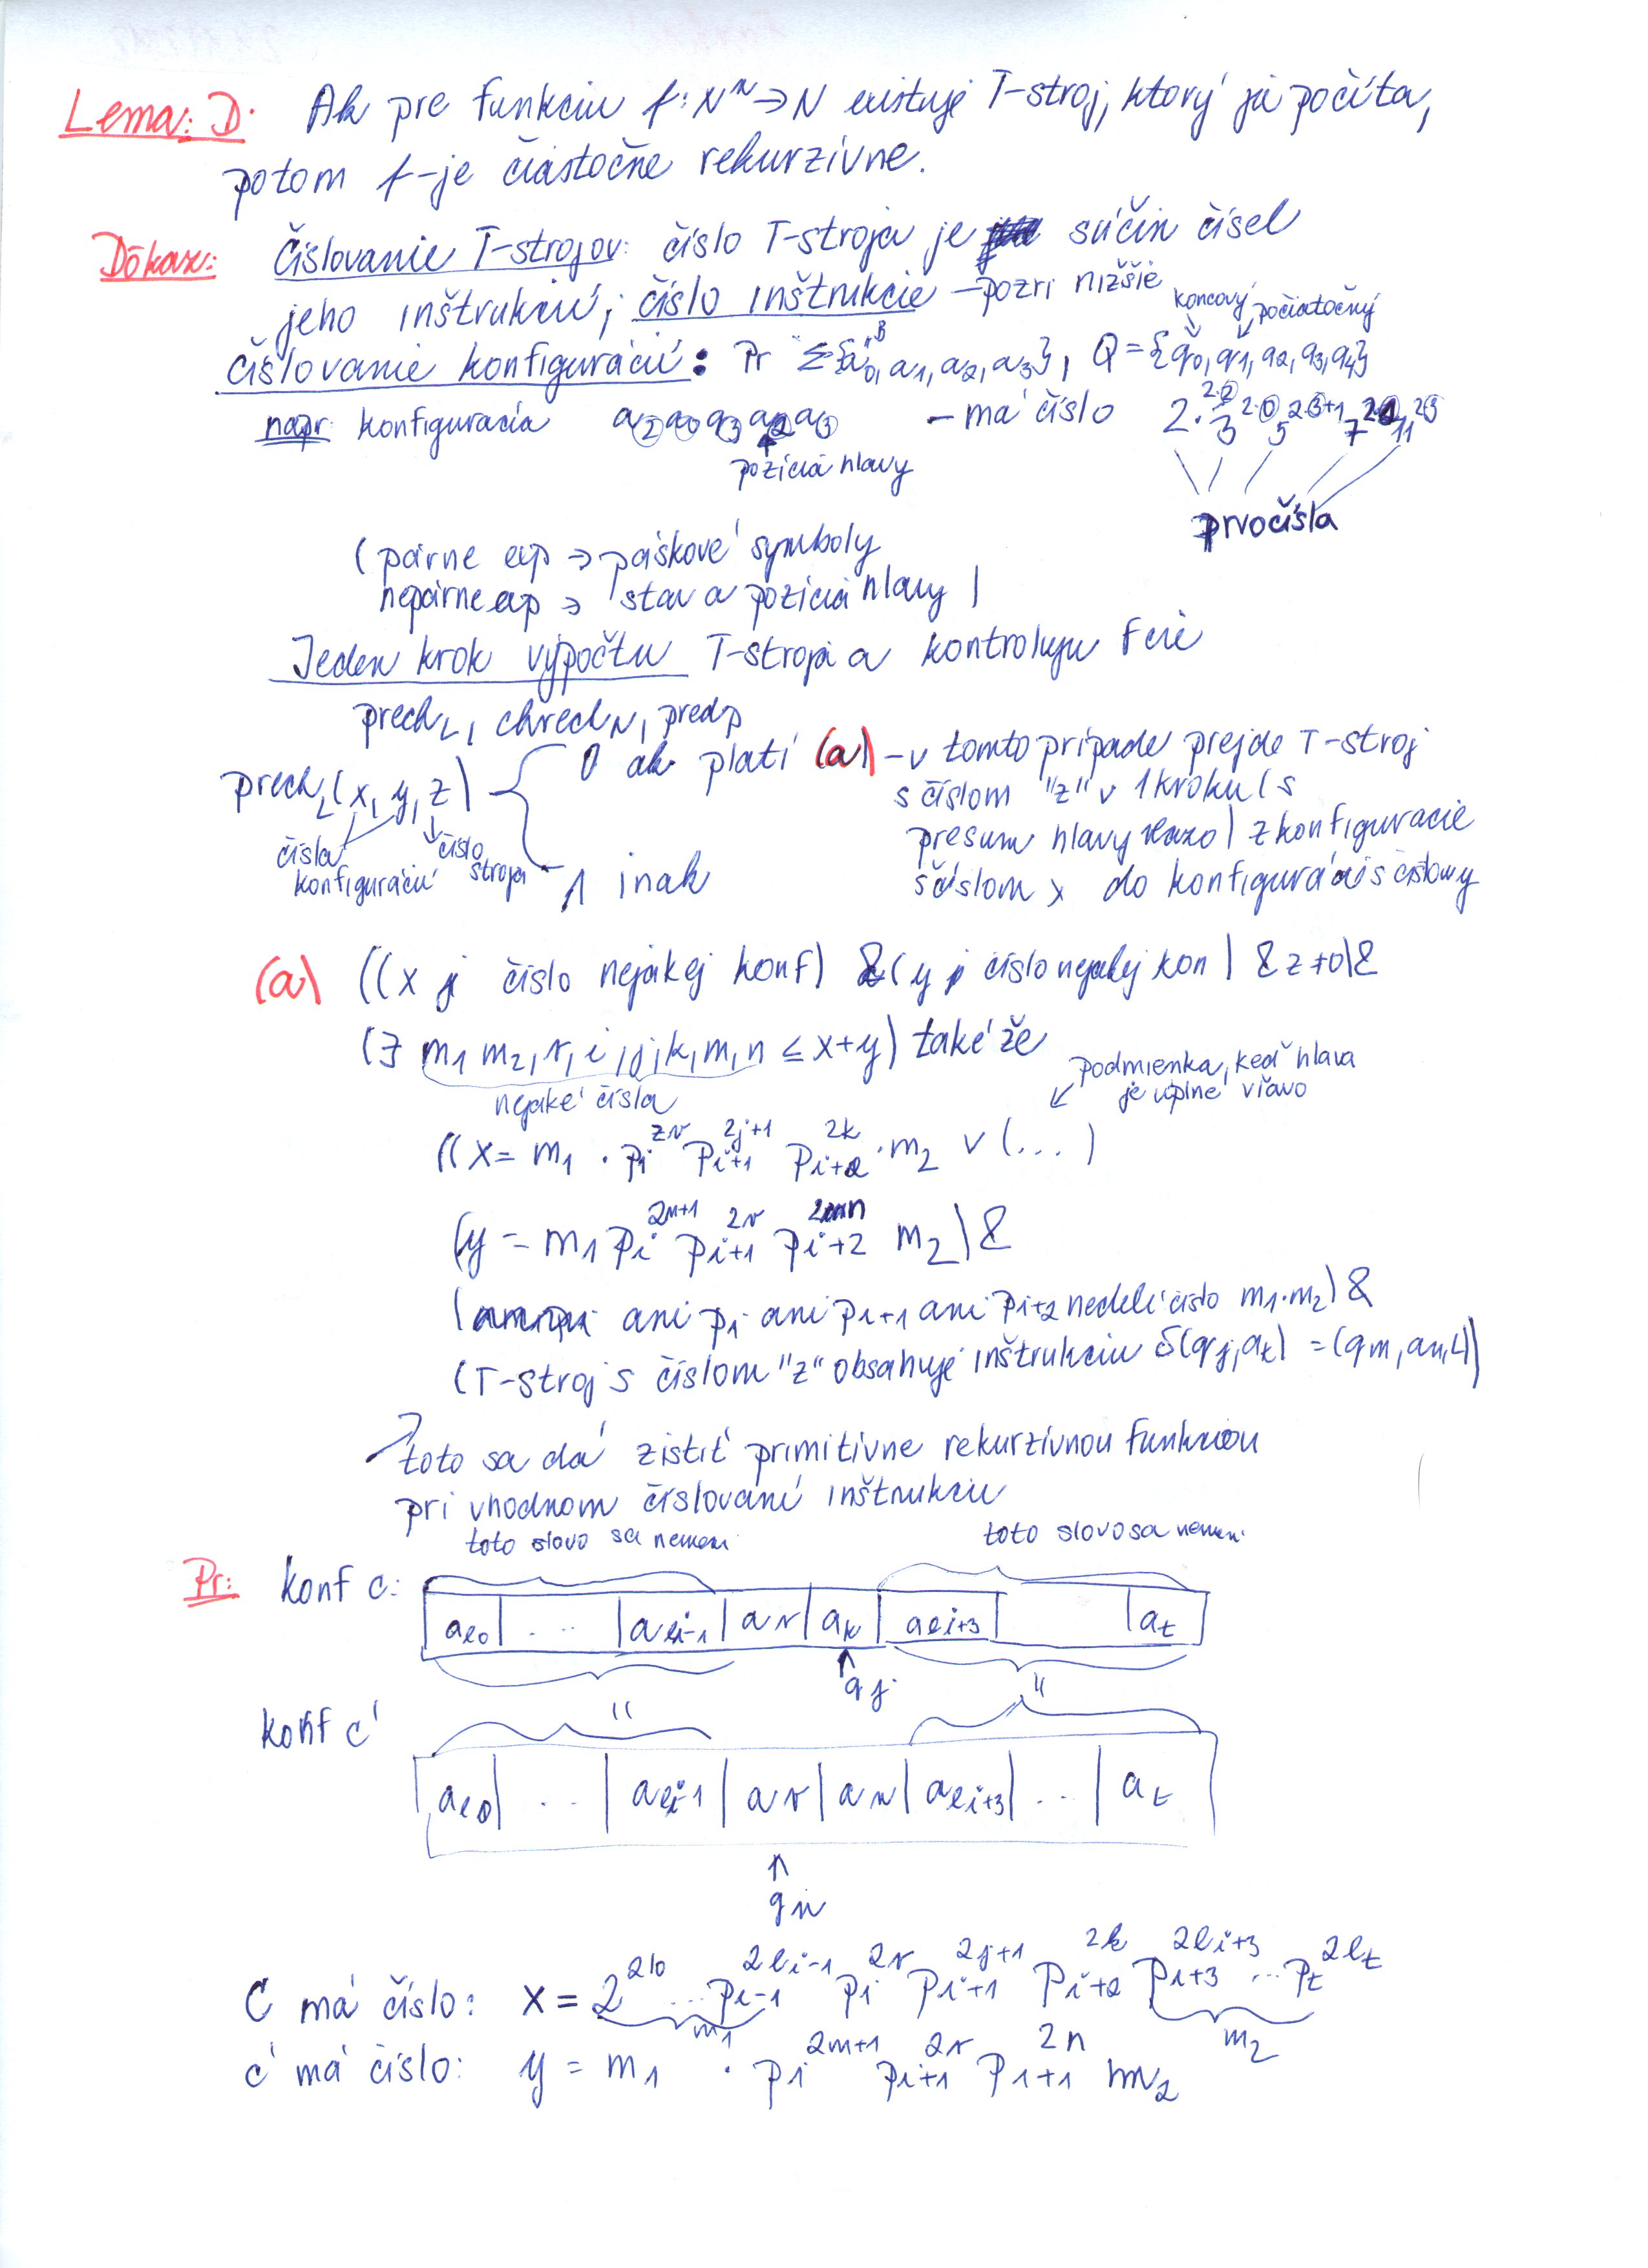 Lema: D. Ak pre funkciu f: N^n → N existuje T-stroj, ktorý ju počíta,
potom f-je čiastočne rekurzívne.
Dôkaz: Číslovanie T-strojov: číslo T-stroja je súčin čísel
jeho inštrukcií; číslo inštrukcie – pozri nižšie
koncový počiatočný
číslovanie konfigurácií: Pr Σ{a0, a1, a2, a3}, Q = {q0, q1, q2, q3, q4}
B
napr konfigurácia a2 a0 q3 a2 a3 – má číslo 2^2·2 · 3^2·0 5^2·3+1 7^2· 11^2·3
pozícia hlavy
prvočísla
(párne exp → páskové symboly
nepárne exp → stav a pozícia hlavy)
Jeden krok výpočtu T-stroja a kontrolujú Fcie
prechL, chrechN, predp
prechL(x, y, z) { 0 ak platí (a) – v tomto prípade prejde T-stroj
s číslom "z" v 1 kroku (s
presunu hlavy vľavo) z konfigurácie
s číslom x do konfigurácie s číslom y
čísla konfigurácií
číslo stroja
1 inak
(a) ((x je číslo nejakej konf) & (y je číslo nejakej kon) & z ≠ 0) &
(∃ m1 m2, r, i, j, k, m, n ≤ x+y) také že
nejaké čísla
podmienka, keď hlava
je úplne vľavo
((x = m1 · pi^2r pi+1^2j+1 pi+2^2k · m2 ∨ (...)
(y = m1 pi^2m+1 pi+1^2r pi+2^2n m2) &
(ani pi ani pi+1 ani pi+2 nedelí číslo m1·m2) &
(T-stroj s číslom "z" obsahuje inštrukciu δ(qj, ak) = (qm, an, L))
toto sa dá zistiť primitívne rekurzívnou funkciou
pri vhodnom číslovaní inštrukcií
toto slovo sa nemení toto slovo sa nemení
Pr: konf c: al0 ... ali-1 ar ak ali+3 at
qj
konf c'
al0 ... ali-1 ar an ali+3 ... at
qm
C má číslo: x = 2^2l0 ... pi-1^2li-1 pi^2r pi+1^2j+1 pi+2^2k pi+3^2li+3 ... pt^2lt
m1 m2
c' má číslo: y = m1 · pi^2m+1 pi+1^2r pi+1^2n m2